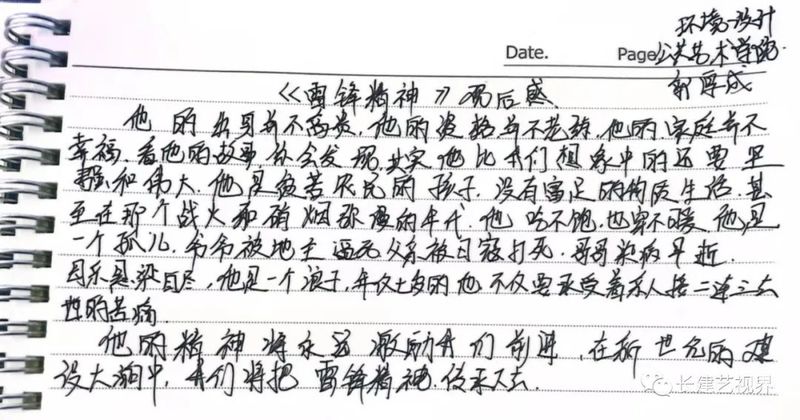 环境设计
Date.
Page 公共艺术学院
郭厚成
《雷锋精神》观后感
他的出身并不高贵,他的资格并不老辣,他的家庭并不
幸福,看他的故事,你会发现,其实他比我们想象中的还要坚
强和伟大。他是贫苦农民的孩子,没有富足的物质生活,甚
至在那个战火和硝烟弥漫的年代,他吃不饱,也穿不暖,他是
一个孤儿,爷爷被地主逼死,父亲被日寇打死,哥哥染病早逝,
母亲悬梁自尽,他是一个浪子,年仅七岁的他不仅要承受着亲人接二连三去
世的苦痛
他的精神将永远激励我们前进,在新世纪的建
设大潮中,我们将把雷锋精神传承下去.
长建艺视界